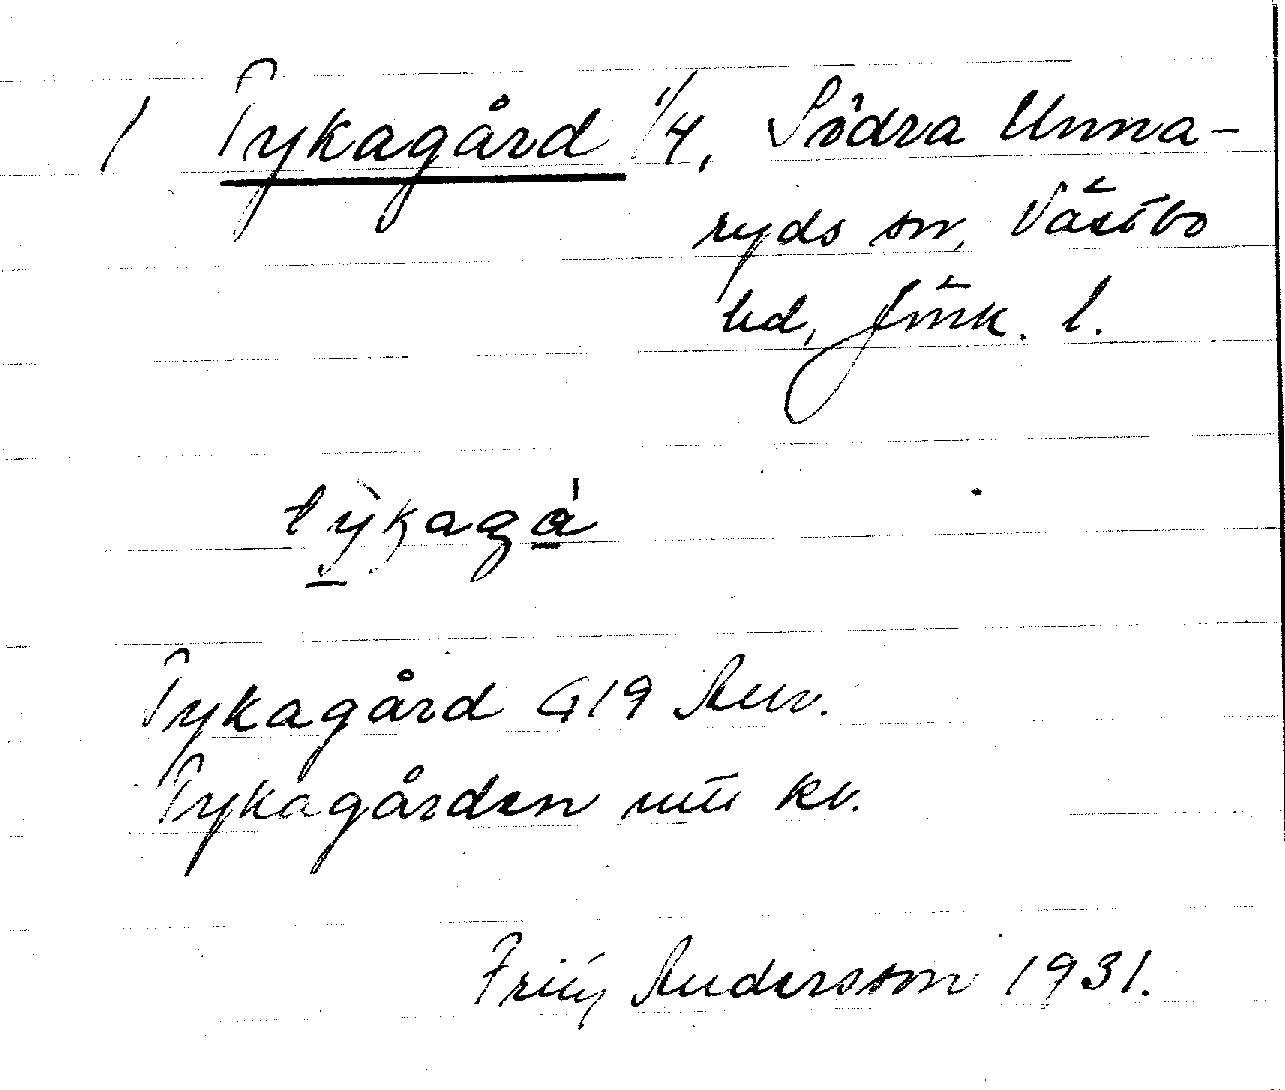 1 Tykagård 1/4, Södra Unna-
ryds sn, Västbo
hd, Jönk. l.
tỳkagá
Tykagård G19
Tykagården kv.
Andersson 1931.